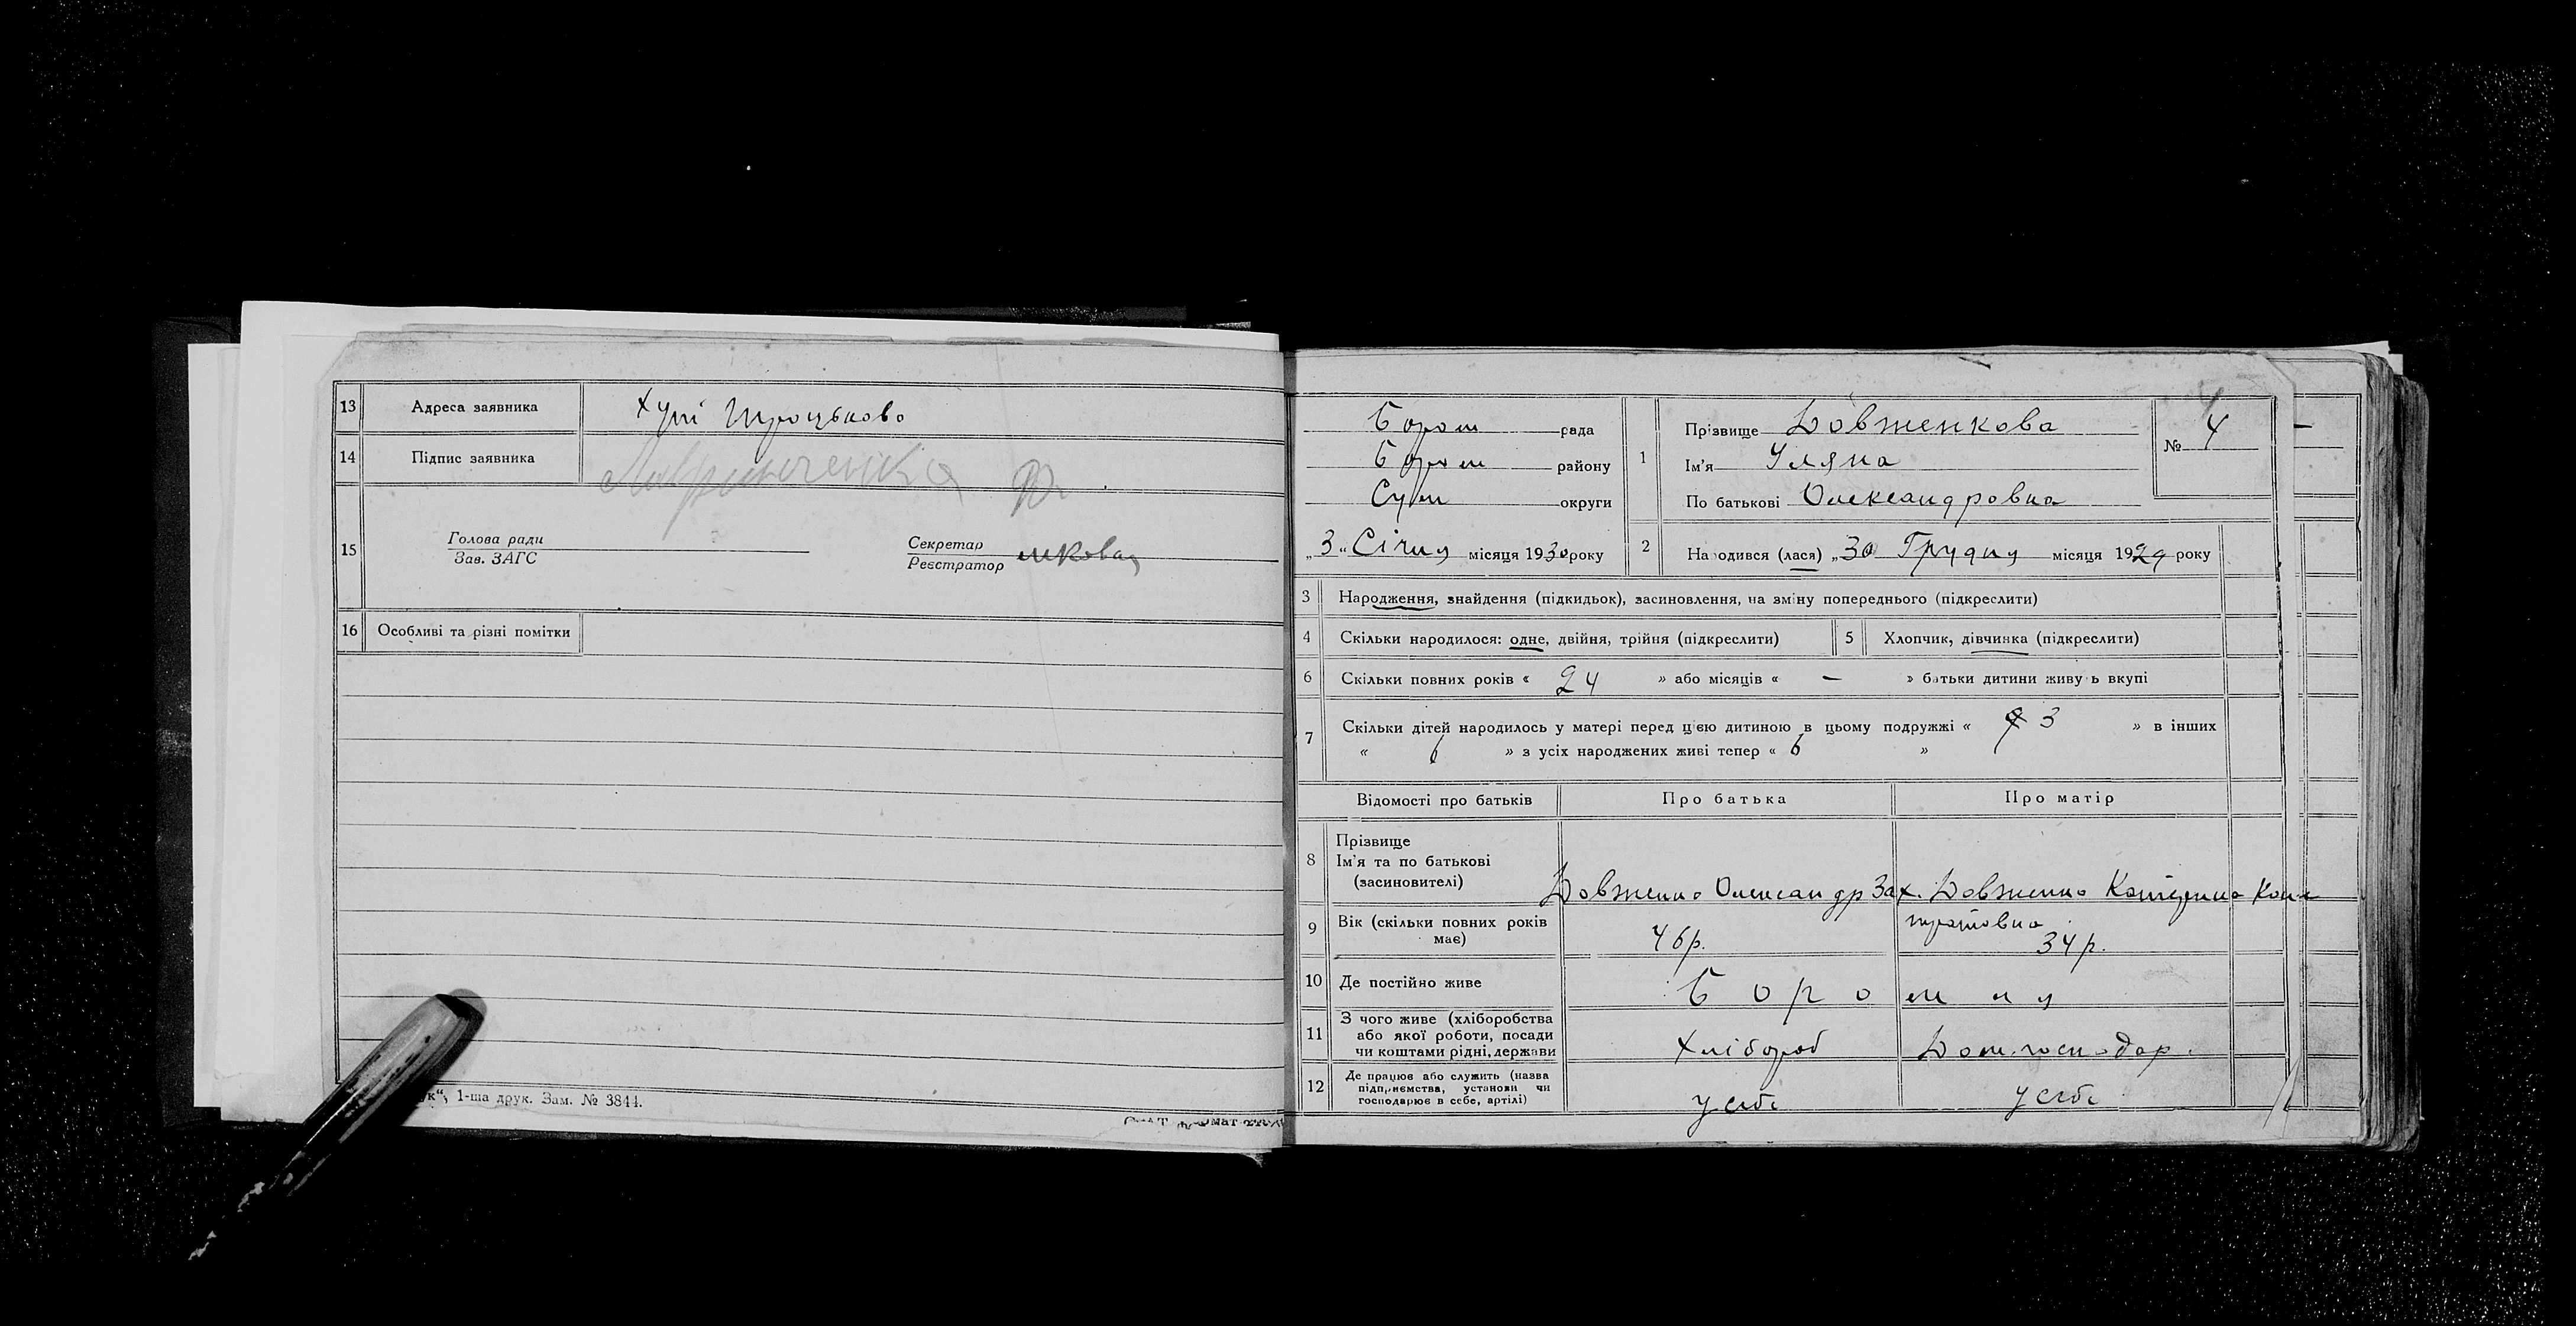 13 Адреса заявника Хут Троцьково
14 Підпис заявника
15 Голова ради
Зав. ЗАГС
Секретар
Реєстратор
16 Особливі та різні помітки
1-ша друк. Зам. № 3844.
Бором рада
Бором району
Сум округи
„3“ Січня місяця 1930 року
1 Прізвище Довженкова
Ім'я Уляна
По батькові Олександровна
№ 4
2 Народився (лася) „30 Грудня місяця 1929 року
3 Народження, знайдення (підкидьок), засиновлення, на зміну попереднього (підкреслити)
4 Скільки народилося: одне, двійня, трійня (підкреслити) 5 Хлопчик, дівчинка (підкреслити)
6 Скільки повних років « 24 » або місяців « – » батьки дитини живуть вкупі
7 Скільки дітей народилось у матері перед цією дитиною в цьому подружжі « 3 » в інших
« 6 » з усіх народжених живі тепер « 6 »
Відомості про батьків Про батька Про матір
8 Прізвище
Ім'я та по батькові
(засиновителі)
Довженко Олександр Зах. Довженко Катерина
9 Вік (скільки повних років має) 46р. 34р.
10 Де постійно живе Боромля
11 З чого живе (хліборобства
або якої роботи, посади
чи коштами рідні, держави
Хлібороб Дом.господар.
12 Де працює або служить (назва
підприємства, установи чи
господарює в себе, артілі)
у себе у себе